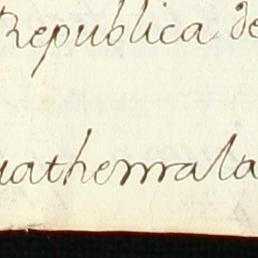 Republica de
uathemala